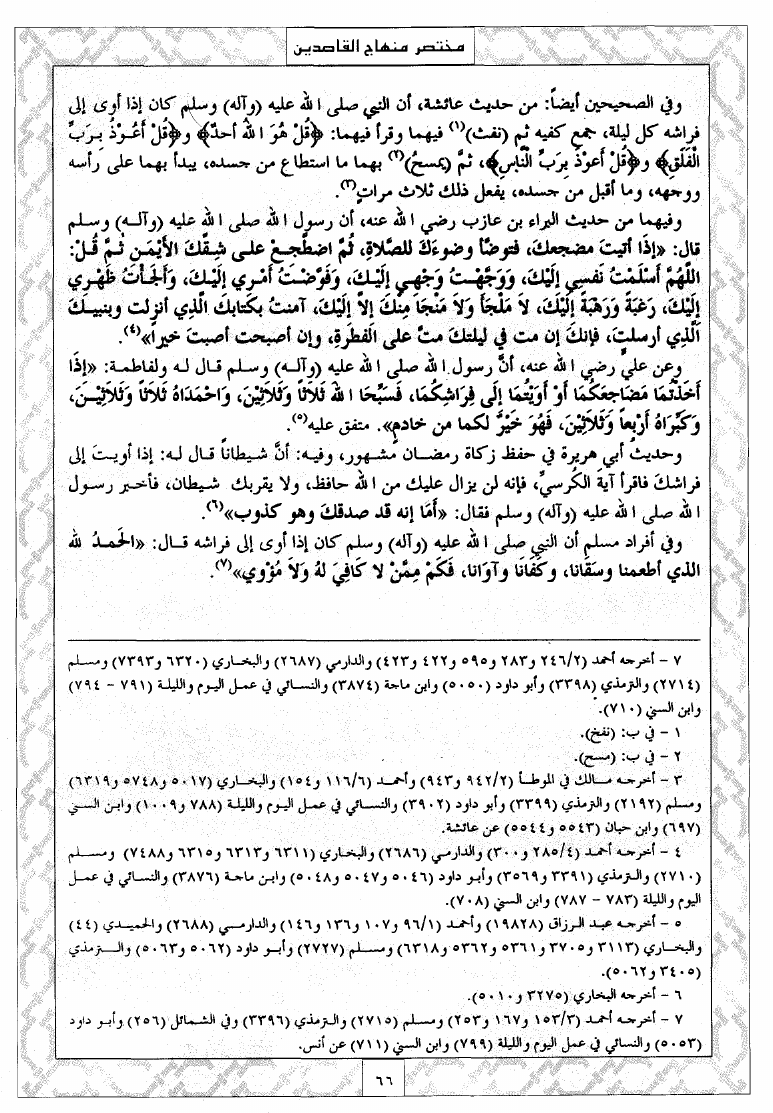 مختصر منهاج القاصدين
وفي الصحيحين أيضاً: من حديث عائشة، أن النبي صلى الله عليه (وآله) وسلم كان إذا أوى إلى
فراشه كل ليلة، جمع كفيه ثم (نفث)(١) فيهما وقرأ فيهما: ﴿قُلْ هُوَ اللهُ أحدٌ﴾ و﴿قُلْ أَعُوْذُ بِرَبِّ
الْفَلَقِ﴾ و﴿قُلْ أَعوْذُ بِرَبِّ النَّاسِ﴾، ثمَّ (يمسحُ)(٢) بهما ما استطاع من جسده، يبدأ بهما على رأسه
ووجهه، وما أقبل من جسده، يفعل ذلك ثلاث مراتٍ(٣).
وفيهما من حديث البراء بن عازب رضي الله عنه، أن رسول الله صلى الله عليه (وآله) وسلم
قال: «إذا أتيتَ مضجعكَ، فتوضّأ وضوءَكَ للصَّلاةِ، ثُمَّ اضطَّجعْ على شِقِّكَ الأيْمَنِ ثُمَّ قُلْ:
اللَّهُمَّ أسْلَمْتُ نَفسِي إلَيْكَ، ووَجَّهْتُ وَجْهِي إلَيْكَ، وفَوَّضْتُ أمْرِي إلَيْكَ، وَأَلْجَأْتُ ظَهْرِي
إلَيْكَ، رَغبَةً وَرَهْبَةً إلَيْكَ، لاَ مَلْجَأَ وَلاَ مَنْجَا مِنْكَ إلاَّ إلَيْكَ، آمنتُ بكتابكَ الَّذي أنزلت وبنبيكَ
الَّذي أرسلتَ، فإنكَ إن مت في ليلتكَ متَّ على الفطرةِ، وإن أصبحت أصبتَ خيراً»(٤).
وعن عليٍّ رضي الله عنه، أنَّ رسول الله صلى الله عليه (وآله) وسلم قال له ولفاطمة: «إذَا
أخَذْتُمَا مَضَاجِعَكُمَا أوْ أوَيْتُمَا إلَى فِرَاشِكُمَا، فَسَبِّحَا اللهَ ثَلاَثاً وَثَلاَثِيْنَ، وَاحْمَدَاهُ ثَلاَثاً وَثَلاَثِيْنَ،
وَكَبِّرَاهُ أرْبعاً وَثَلاَثِيْنَ، فَهُوَ خَيْرٌ لكما من خادمٍ». متفق عليه(٥).
وحديث أبي هريرة في حفظ زكاة رمضان مشهور، وفيه: أنَّ شيطاناً قال له: إذا أويتَ إلى
فراشكَ فاقرأ آيةَ الكرسيِّ، فإنه لن يزال عليك من الله حافظ، ولا يقربك شيطان، فأخبر رسول
الله صلى الله عليه (وآله) وسلم فقال: «أمَا إنه قد صدقكَ وهو كذوب»(٦).
وفي أفراد مسلم أن النبي صلى الله عليه (وآله) وسلم كان إذا أوى إلى فراشه قال: «الحَمدُ لله
الذي أطعمنا وسَقَانا، وكَفَانا وآوَانا، فَكَمْ مِمَّنْ لا كافِيَ لهُ وَلاَ مُؤْوِي»(٧).
٧ – أخرجه أحمد (٢٤٦/٢ و٢٨٣ و٥٩٥ و٤٢٢ و٤٢٣) والدارمي (٢٦٨٧) والبخاري (٦٣٢٠ و٧٣٩٣) ومسلم
(٢٧١٤) والترمذي (٣٣٩٨) وأبو داود (٥٠٥٠) وابن ماجة (٣٨٧٤) والنسائي في عمل اليوم والليلة (٧٩١ – ٧٩٤)
وابن السني (٧١٠).
١ – في ب: (نفخ).
٢ – في ب: (مسح).
٣ – أخرجه مالك في الموطأ (٩٤٢/٢ و٩٤٣) وأحمد (١١٦/٦ و١٥٤) والبخاري (٥٠١٧ و٥٧٤٨ و٦٣١٩)
ومسلم (٢١٩٢) والترمذي (٣٣٩٩) وأبو داود (٣٩٠٢) والنسائي في عمل اليوم والليلة (٧٨٨ و١٠٠٩) وابن السني
(٦٩٧) وابن حبان (٥٥٤٣ و٥٥٤٤) عن عائشة.
٤ – أخرجه أحمد (٢٨٥/٤ و٣٠٠) والدارمي (٢٦٨٦) والبخاري (٦٣١١ و٦٣١٣ و٦٣١٥ و٧٤٨٨) ومسلم
(٢٧١٠) والترمذي (٣٣٩١ و٣٥٦٩) وأبو داود (٥٠٤٦ و٥٠٤٧ و٥٠٤٨) وابن ماجة (٣٨٧٦) والنسائي في عمل
اليوم والليلة (٧٨٣ – ٧٨٧) وابن السني (٧٠٨).
٥ – أخرجه عبد الرزاق (١٩٨٢٨) وأحمد (٩٦/١ و١٠٧ و١٣٦ و١٤٦) والدارمي (٢٦٨٨) والحميدي (٤٤)
والبخاري (٣١١٣ و٣٧٠٥ و٥٣٦١ و٥٣٦٢ و٦٣١٨) ومسلم (٢٧٢٧) وأبو داود (٥٠٦٢ و٥٠٦٣) والترمذي
(٣٤٠٥ و٥٠٦٢).
٦ – أخرجه البخاري (٣٢٧٥ و٥٠١٠).
٧ – أخرجه أحمد (١٥٣/٣ و١٦٧ و٢٥٣) ومسلم (٢٧١٥) والترمذي (٣٣٩٦) وفي الشمائل (٢٥٦) وأبو داود
(٥٠٥٣) والنسائي في عمل اليوم والليلة (٧٩٩) وابن السني (٧١١) عن أنس.
٦٦